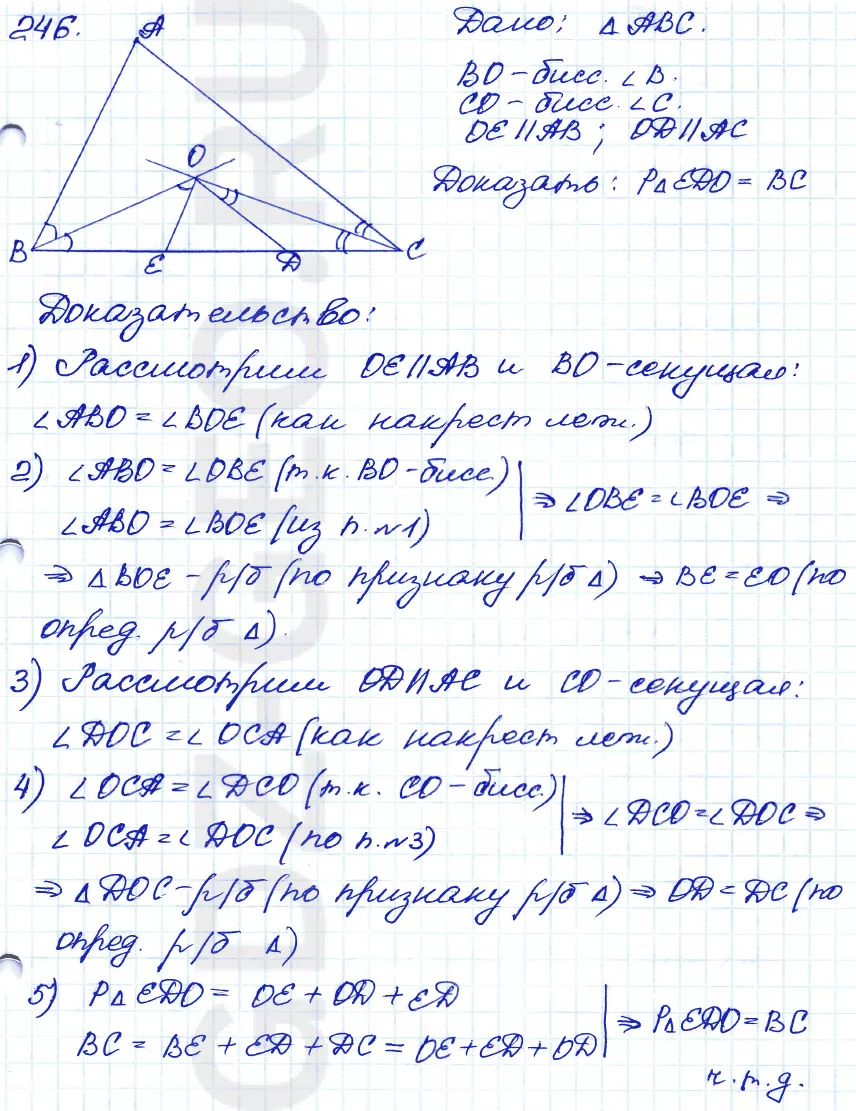 246.
A
O
B
E
D
C
Дано: △ABC.
BO - бисс. ∠B.
CO - бисс. ∠C.
OE || AB ; OD || AC
Доказать: P△EDO = BC
Доказательство:
1) Рассмотрим OE || AB и BO - секущая:
∠ABO = ∠BOE (как накрест леж.)
2) ∠ABO = ∠OBE (т.к. BO - бисс.)
∠ABO = ∠BOE (из п.№1)
⇒ ∠OBE = ∠BOE ⇒
⇒ △BOE - р/б (по признаку р/б △) ⇒ BE = EO (по
опред. р/б △).
3) Рассмотрим OD || AC и CO - секущая:
∠DOC = ∠OCA (как накрест леж.)
4) ∠OCA = ∠DCO (т.к. CO - бисс.)
∠OCA = ∠DOC (по п.№3)
⇒ ∠DCO = ∠DOC ⇒
⇒ △DOC - р/б (по признаку р/б △) ⇒ OD = DC (по
опред. р/б △)
5) P△EDO = OE + OD + ED
BC = BE + ED + DC = OE + ED + OD
⇒ P△EDO = BC
ч.т.д.
GDZ-GEO.RU